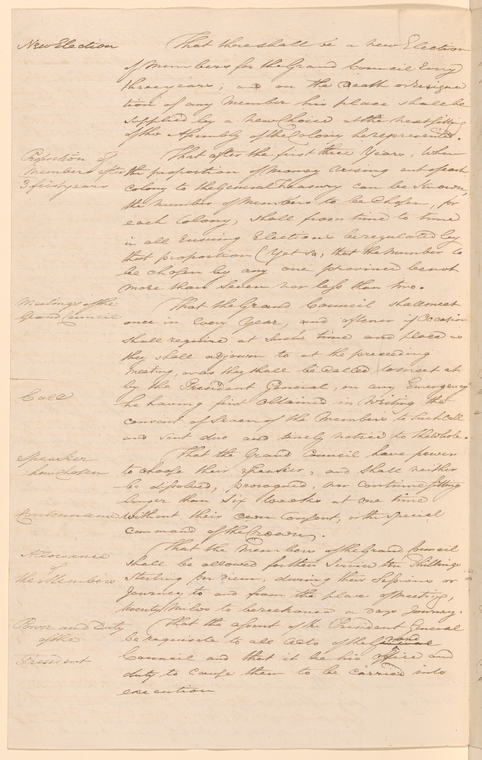 New Election
That there shall be a new Election
of Members for the Grand Council Every
three years; and on the Death or resigna
tion of any Member his place shall be
Supplied by a new Choice at the next sitting
of the Assembly of the Colony he represented.
Proportion of
Members after
3 first years
That after the first three Years, when
the proportion of Money arising out of each
Colony to the General Treasury can be known,
the number of Members to be Chosen, for
each Colony, shall from time to time
in all Ensuing Elections be regulated by
that proportion (Yet so, that the Number to
be chosen by any one province be not
more than Seven nor less than two.
Meetings of the
Grand Council
That the Grand Council shall meet
once in Every Year, and oftener if Occasion
shall require at such time and place as
they shall adjourn to at the preceding
Meeting, or as they shall be Called to meet at
by the President General, on any Emergency
Call
he having first obtained in writing the
consent of Seven of the Members to such call
and sent due and timely notice to the whole.
Speaker
how chosen
That the Grand Council have power
to chose their Speaker, and shall neither
be dissolved, prorogued, nor continue sitting
longer than Six Weeks at one time
Continuance
without their own Consent, or the special
command of the Crown.
Allowance
of
the Members
That the Members of the Grand Council
shall be allowed for their Service ten Shillings
Sterling per diem, during their Sessions or
Journey to and from the place of Meeting,
twenty Miles to be reckoned a days Journey.
Power and Duty
of the
President
That the assent of the President General
be requisite to all Acts of the Grand
Council and that it be his office and
duty to cause them to be carried into
execution